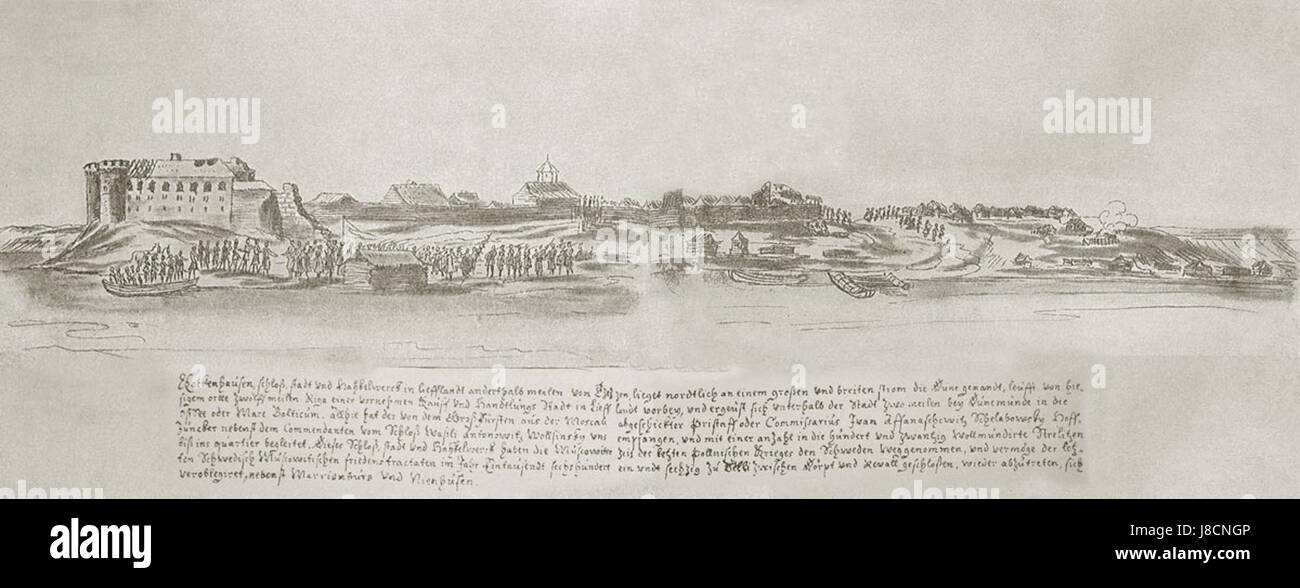 Kokenhausen, schloß, stadt und Hakkelwerck in Lieffland anderthalb meilen von
zen, lieget nordtlich an einem großen und breiten strom die Dune genandt, leufft von hie-
sigem orte zwölff meilen Riga einer vornehmen Kauff und Handlungs Stadt in Lieff
landt vorbey, und ergeust sich unterhalb der Stadt zwo meilen bey Dunemünde in die
OstSee oder Mare Balticum. alhie hat der von dem GrosFürsten aus der Moscau
abgeschickter Pristaff oder Commissarius Ivan Affanaschewitz Schelabowsky Hoff-
Juncker nebenst dem Commendanten vom Schloß Wasili Antonowitz Wollsinsky uns
empfangen, und mit einer anzahl in die hundert und zwantzig Wollmundirte Strelitzen
biß ins quartier begleitet. Dieses Schloß, stadt und Hakkelwerck haben die Müscowitter
zeit des letzten Pollnischen Krieges den Schweden weggenommen, und vermöge der letz-
ten Schwedisch Müscowitischen friedenstractaten im Jahr Eintausendt sechshundert
ein undt sechzig zu zwischen Dorpt und Rewall geschloßen, wieder abzutreten, sich
verobligiret, nebenst Marrienburg und Nienhusen.
alamy
alamy
alamy
alamy
alamy
a
a
a
a
alamy
Image ID: J8CNGP
www.alamy.com